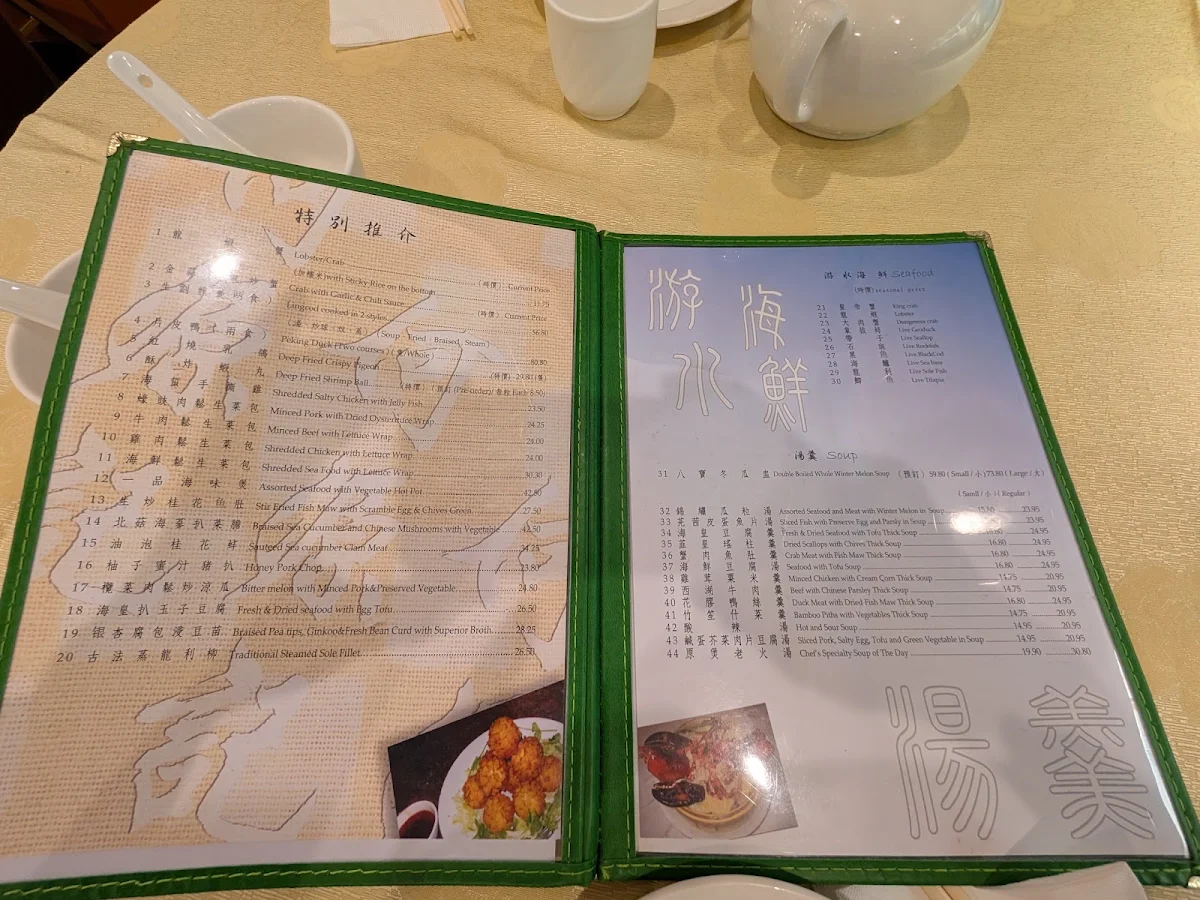 特別推介
1 龍 蝦 蟹 Lobster/Crab (時價) Current Price
(加糯米)with Sticky Rice on the bottom 11.75
2 金 蒜 炒 蟹 Crabs with Garlic & Chili Sauce (時價) Current Price
Lingcod cooked in 2-styles 56.80
(Soup - Fried - Braised - Steam)
4 片皮鴨(兩食) Peking Duck (Two courses) 80.80
5 紅燒乳鴿 Deep Fried Crispy Pigeon (時價) 29.80
6 酥炸蝦丸 Deep Fried Shrimp Ball (Pre-order)/ Each 8.50)
7 海蜇手撕雞 Shredded Salty Chicken with Jelly Fish 23.50
8 蠔豉肉鬆生菜包 Minced Pork with Dried Oysterttuce Wrap 24.25
9 牛肉鬆生菜包 Minced Beef with Lettuce Wrap 24.00
10 雞肉鬆生菜包 Shredded Chicken with Lettuce Wrap 24.00
11 海鮮鬆生菜包 Shredded Sea Food with Lettuce Wrap 30.30
12 一品海味煲 Assorted Seafood with Vegetable Hot Pot 42.80
13 生炒桂花魚肚 Stir Fried Fish Maw with Scramble Egg & Chives Green 27.50
14 北菇海蔘扒菜膽 Braised Sea Cucumber and Chinese Mushrooms with Vegetable 42.50
15 油泡桂花蚌 Sauteed Sea cucumber Clam Meat 34.25
16 柚子蜜汁豬扒 Honey Pork Chop 23.80
17 欖菜肉鬆炒涼瓜 Bitter melon with Minced Pork&Preserved Vegetable 24.80
18 海皇扒玉子豆腐 Fresh & Dried seafood with Egg Tofu 26.50
19 银杏腐包浸豆苗 Braised Pea tips, Ginkoo&Fresh Bean Curd with Superior Broth 28.25
20 古法蒸龍利柳 Traditional Steamed Sole Fillet 26.50
游水海鮮
游水海鮮 Seafood
(時價)seasonal price
21 皇帝蟹 King crab
22 龍蝦 Lobster
23 大肉蟹 Dungeness crab
24 象拔蚌 Live Geoduck
25 帶子 Live Scallop
26 石斑 Live Rockfish
27 黑魚 Live BlackCod
28 海鱸 Live Sea bass
29 龍利 Live Sole Fish
30 鯽魚 Live Tilapia
湯羹 Soup
31 八寶冬瓜盅 Double Boiled Whole Winter Melon Soup (預訂) 59.80 (Small / 小)73.80 (Large / 大)
(Samll / 小)(Regular)
32 錦繡瓜粒湯 Assorted Seafood and Meat with Winter Melon in Soup 15.80 23.95
33 芫茜皮蛋魚片湯 Sliced Fish with Preserve Egg and Parsly in Soup 23.95
34 海皇豆腐羹 Fresh & Dried Seafood with Tofu Thick Soup 24.95
35 韮皇瑤柱羹 Dried Scallops with Chives Thick Soup 16.80 24.95
36 蟹肉魚肚羹 Crab Meat with Fish Maw Thick Soup 16.80 24.95
37 海鮮豆腐湯 Seafood with Tofu Soup 16.80 24.95
38 雞茸粟米羹 Minced Chicken with Cream Corn Thick Soup 14.75 20.95
39 西湖牛肉羹 Beef with Chinese Parsley Thick Soup 14.75 20.95
40 花膠鴨絲羹 Duck Meat with Dried Fish Maw Thick Soup 16.80 24.95
41 竹笙什菜羹 Bamboo Pitha with Vegetable Thick Soup 14.75 20.95
42 酸辣湯 Hot and Sour Soup 14.95 20.95
43 鹹蛋芥菜肉片豆腐湯 Sliced Pork, Salty Egg, Tofu and Green Vegetable in Soup 14.95 20.95
44 原煲老火湯 Chef's Specialty Soup of The Day 19.90 30.80
湯羹